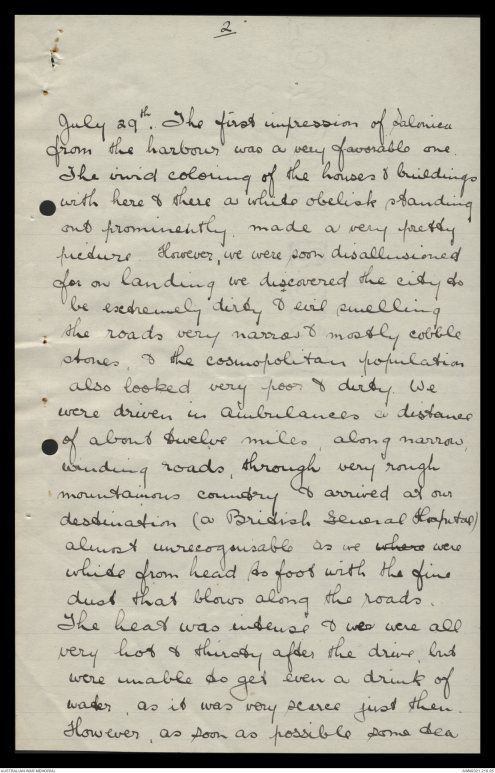 2
July 29th. The first impression of Salonica
from the harbour was a very favorable one.
The vivid coloring of the houses & buildings
with here & there a white obelisk standing
out prominently, made a very pretty
picture. However, we were soon disallusioned
for on landing we discovered the city to
be extremely dirty & evil smelling
the roads very narrow & mostly cobble
stones, & the cosmopolitan population
also looked very poor & dirty. We
were driven in ambulances a distance
of about twelve miles, along narrow,
winding roads, through very rough
mountainous country & arrived at our
destination (a British General Hospital)
almost unrecognisable as we where were
white from head to foot with the fine
dust that blows along the roads.
The heat was intense & we were all
very hot & thirsty after the drive, but
were unable to get even a drink of
water, as it was very scarce just then.
However, as soon as possible some tea
AUSTRALIAN WAR MEMORIAL